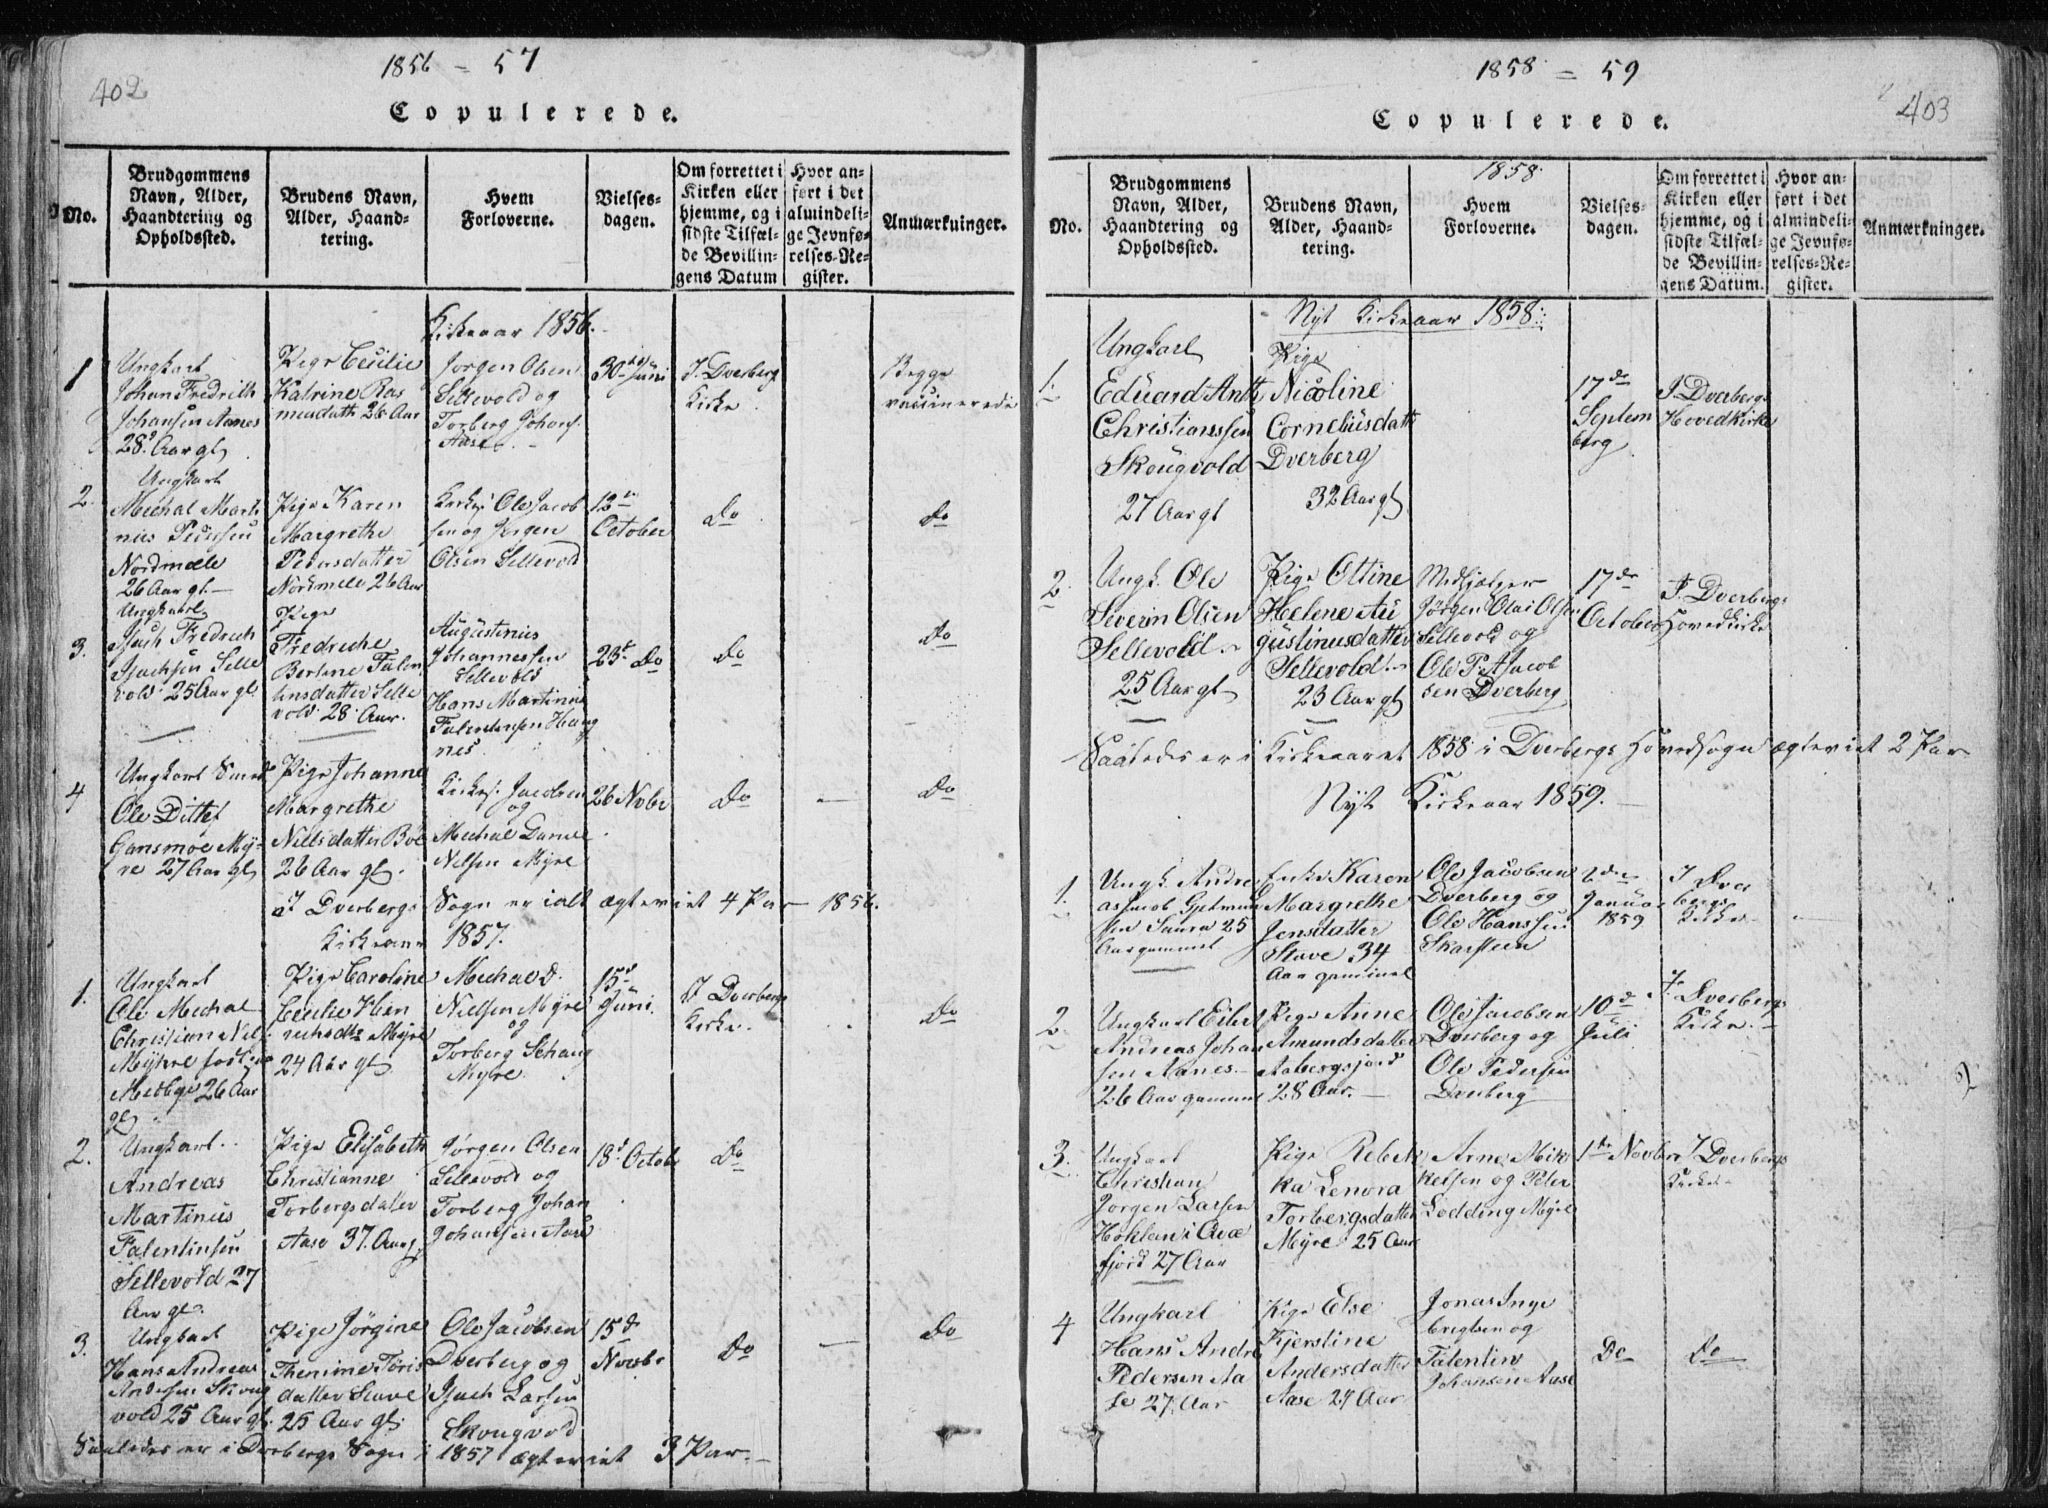 402
1856 = 57
Copulerede.
No.
Brudgommens
Navn, Alder,
Haandtering og
Opholdssted.
Brudens Navn,
Alder, Haand-
tering.
Hvem
Forloverne.
Vielses-
dagen.
Om forrettet i
Kirken eller
hjemme, og i
sidste Tilfæl-
de Bevillin-
gens Datum
Hvor an-
ført i det
almindeli-
ge Jevnfø-
relses-Re-
gister.
Anmærkninger.
Kirkeaar 1856.
1
Ungkarl
Johan Fredrich
Johansen Aanes
28 Aar gl
Pige Cecilie
Katrine Ras
musdatt 26 Aar
Jørgen Olsen
Sellevold og
Torberg Johans
Aase
30te Juni
I Dverberg
Kirke
Begge
vaccinerede
2.
Ungkarl
Mechal Marti
nus Pedersen
Nordmele
26 Aar gl
Pige Karen
Margrethe
Pedersdatter
Nordmele 26 Aar
Kirkes. Ole Jacob
sen og Jørgen
Olsen Sellevold
12te
October
Do
Do
3.
Ungkarl
Isach Fredrich
Isachsen Selle
vold 25 Aar gl
Pige
Fredriche
Berline Falen
tinsdatter Selle
vold 28 Aar.
Augustinus
Johannessen
Sellevold
Hans Martinus
Falentinsen Haug
nes.
23de Do
Do
Do
4
Ungkarl Smed
Ole Ditlef
Gansmoe My-
re 27 Aar gl
Pige Johanne
Margrethe
Nielsdatter Bøe
26 Aar gl.
Kirkes. Jacobsen
og
Mechal Daniel
Nilsen Myre
26 Novbr
Do
Do
I Dverbergs Sogn er ialt ægteviet 4 Par 1856.
Kirkeaar 1857.
1.
Ungkarl
Ole Mechal
Christian Nils.
Myhre
26 Aar
gl
Pige Caroline
Cecilie Hen
richsdtr Myre
24 Aar gl
Mechal D.
Nielsen Myre
og
Torberg Schaug
Myre
15d
Juni
I Dverbergs
Kirke.
Do
2.
Ungkarl
Andreas
Martinus
Falentinsen
Sellevold 27
Aar gl.
Pige Elisabeth
Christianne
Torbergsdatter
Aase 37 Aar gl
Jørgen Olsen
Sellevold og
Torberg Johan
Johansen Aase
18d Octob
Do
3.
Ungkarl
Hans Andreas
Andersen Skoug
vold 25 Aar gl.
Pige Jørgine
Thenine Toris
datter Stave
25 Aar gl.
Ole Jacobsen
Dverberg og
Isach Larsen
Skougvold
15d
Novbr
Do
Do
Saaledes er i Dverbergs Sogn i 1857 ægteviet 3 Par.
403
1858 = 59
Copulerede.
1858
No.
Brudgommens
Navn, Alder,
Haandtering og
Opholdssted.
Brudens Navn,
Alder, Haand-
tering.
Hvem
Forloverne.
Vielses-
dagen.
Om forrettet i
Kirken eller
hjemme, og i
sidste Tilfæl-
de Bevillin-
gens Datum.
Hvor an-
ført i det
almindeli-
ge Jevnfø-
relses-Re-
gister.
Anmærkninger.
Nyt Kirkeaar 1858.
1.
Ungkarl
Eduard Antt
Christianssen
Skougvold
27 Aar gl
Pige
Nicoline
Corneliusdatt
Dverberg
32 Aar gl
17de
Septem
berg
I Dverbergs
Hovedkirke
2.
Ungk. Ole
Severin Olsen
Sellevold.
25 Aar gl
Pige Ottine
Helene Au
gustinusdatter
Sellevold.
23 Aar gl
Medhjælper
Jørgen Olai Olsen
Sellevold og
Ole P. A. Jacob
sen Dverberg
17de
October
I. Dverbergs
Hovedkirke
Saaledes er i Kirkeaaret 1858 i Dverbergs Hovedsogn ægteviet 2 Par
Nyt Kirkeaar 1859.
1.
Ungk. Andre
as Jacob
sen Saura 25
Aar gammel
Enke Karen
Margrethe
Jensdatter
Stave 34
Aar gammel
Ole Jacobsen
Dverberg og
Ole Hanssen
Skarsteen
2den
Januar
1859
I Dver
bergs
Kirke
2
Ungkarl Eiler
Andreas Johan
sen Aanes
26 Aar gammel
Pige Anne
Amundsdatter
Aabergsjord
28 Aar.
Ole Jacobsen
Dverberg og
Ole Pedersen
Dverberg
10d
Juli
I. Dverbergs
Kirke.
2
3.
Ungkarl
Christian
Jørgen Larsen
Hohlen i Qvæ
fjord 27 Aar
Pige Rebek
ka Lenora
Torbergsdatter
Myre 25 Aar
Arne Mik
kelsen og Peter
Lodding Myre
1ste Novber
I Dverbergs
Kirke
4
Ungkarl
Hans Andre
Pedersen Aa
se 27 Aar
Pige Else
Kjerstine
Andersdatter
Aase 24 Aar
Jonas Inge
brigtsen og
Talentin
Johansen Aase
Do
Do